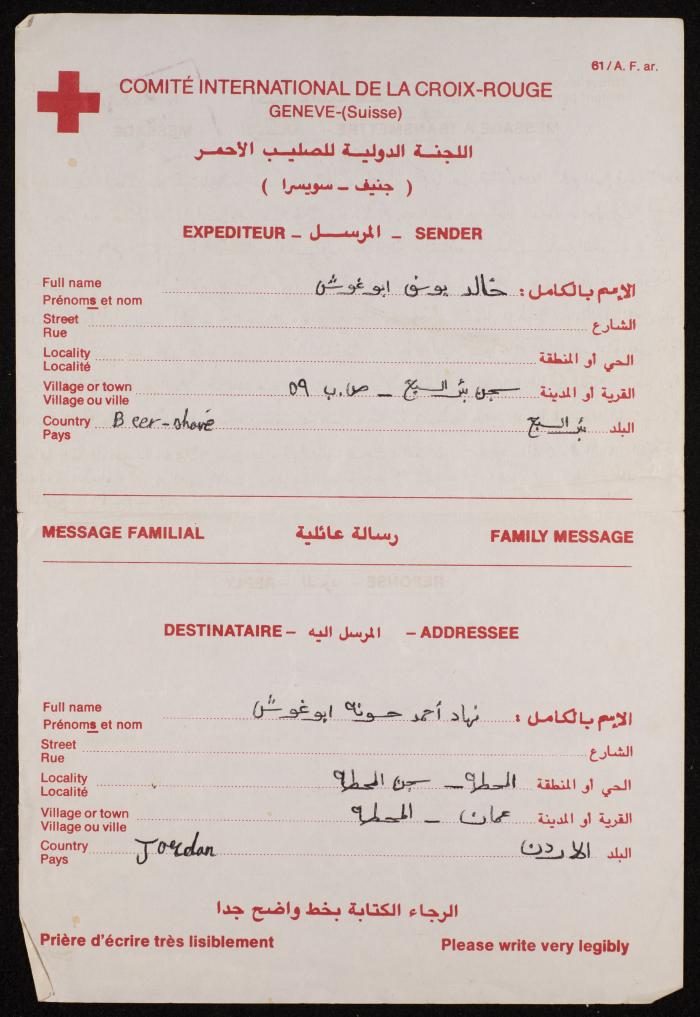 61 / A. F. ar.
COMITÉ INTERNATIONAL DE LA CROIX-ROUGE
GENEVE-(Suisse)
اللجنة الدولية للصليب الأحمر
( جنيف - سويسرا )
EXPEDITEUR - المرسل - SENDER
Full name خالد يوسف ابو غوش الإسم بالكامل :
Prénoms et nom
Street الشارع
Rue
Locality الحي أو المنطقة
Localité
Village or town سجن بئر السبع - ص.ب ٥٩ القرية أو المدينة
Village ou ville
Country Beer-shave بئر السبع البلد
Pays
MESSAGE FAMILIAL رسالة عائلية FAMILY MESSAGE
DESTINATAIRE - المرسل اليه - ADDRESSEE
Full name نهاد أحمد حسونه ابو غوش الإسم بالكامل :
Prénoms et nom
Street الشارع
Rue
Locality المحطه - سجن المحطه الحي أو المنطقة
Localité
Village or town عمان - المحطه القرية أو المدينة
Village ou ville
Country Jordan الاردن البلد
Pays
الرجاء الكتابة بخط واضح جدا
Prière d'écrire très lisiblement Please write very legibly